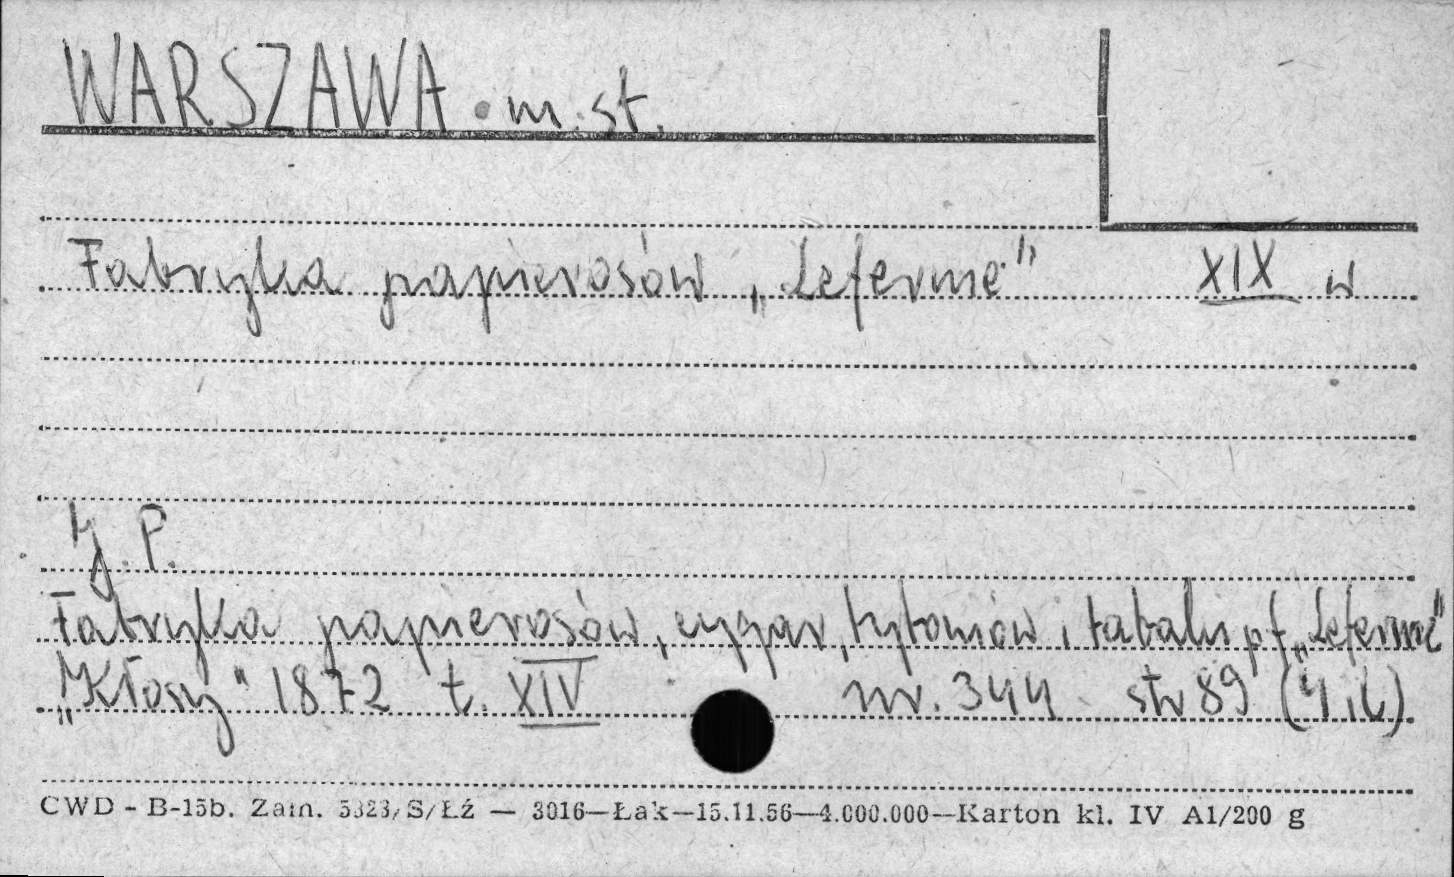 WARSZAWA m. st.
Fabryka papierosów „Leferme" XIX w
J. P.
Fabryka papierosów, cygar, tytoniów i tabaki pf „Leferme"
„Kłosy" 1872 t. XIV nr. 344 str 89 (4 il)
CWD - B-15b. Zam. 5323/S/Łź — 3016—Łak—15.11.56—4.000.000—Karton kl. IV A1/200 g